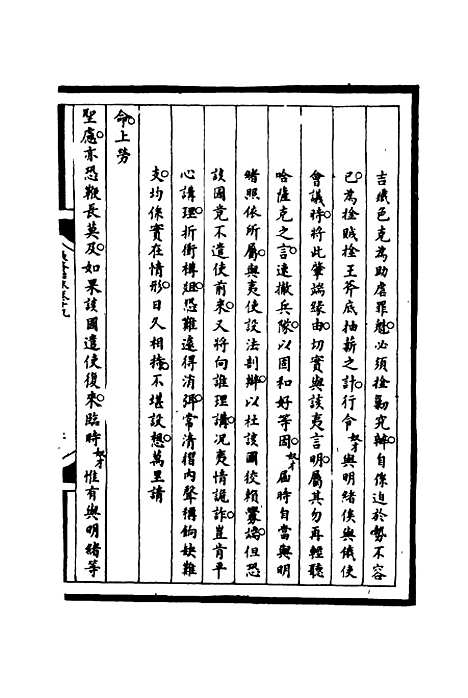 吉緞色克為助虐罪魁必須擒勦究辦自係迫於勢不容
已為擒賊擒王斧底抽薪之計行令奴才與明緒俟與俄使
會議時將此肇端緣由切實與該夷言明屬其勿再輕聽
哈薩克之言速撤兵隊以固和好等因奴才屆時自當與明
緒照依所屬與夷使設法剖辦以杜該國狡賴釁端但恐
該國竟不遣使前來又將向誰理講況夷情詭詐豈肯平
心講理折衝樽俎恐難遠得消弭常清摺內聲稱餉缺難
支均係實在情形日久相持不堪設想萬里請
命上勞
聖慮亦恐鞭長莫及如果該國遣使復來臨時奴才惟有與明緒等